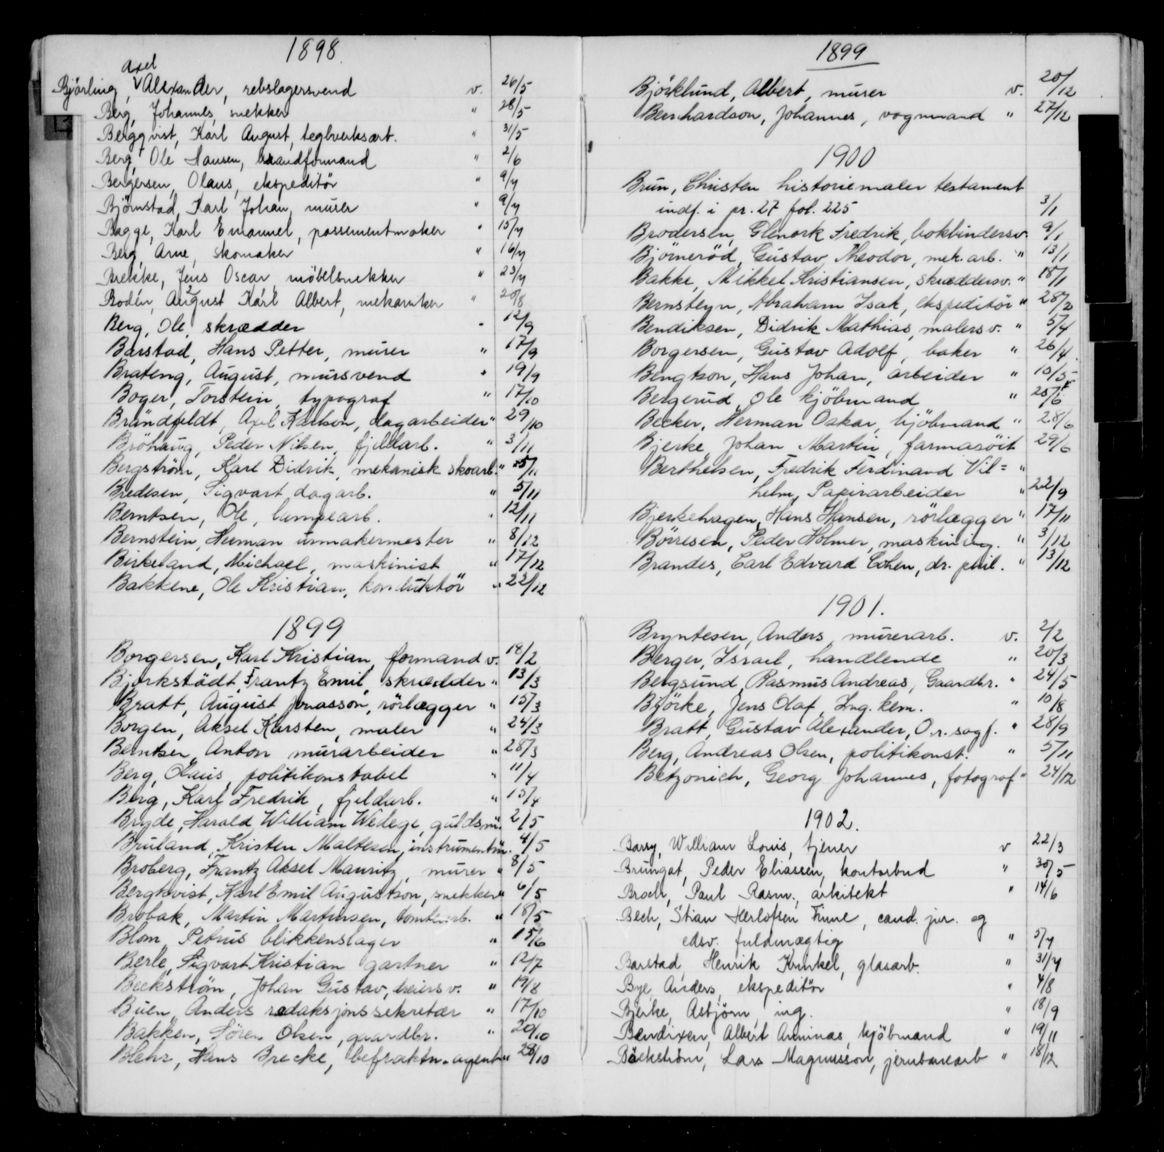 1898.
Axel
Björling, Alexander, rebslagersvend v. 26/5
Berg, Johannes, snekker " 28/5
Bergqvist, Karl August, teglverksarb. " 31/5
Berg, Ole Hansen, brandformand " 2/6
Bergersen, Olaus, ekspeditör " 9/7
Björnstad, Karl Johan, murer " 9/7
Bagge, Karl Emanuel, possementmaker " 15/7
Berg, Arne, skomaker " 16/7
Brekke, Jens Oscar möbelsnekker " 23/7
Bodén, August Karl Albert, mekaniker " 20/8
Berg, Ole skrædder " 12/9
Barstad, Hans Petter, murer " 17/9
Brateng, August, mursvend " 19/9
Boger, Torstein, typograf " 17/10
Brändfeldt, Axel Karlsen, dagarbeider " 29/10
Bröhaug, Peder Nilsen, fjeldarb. " 3/11
Bergström, Karl Didrik, mekanisk skoarb. " 5/11
Bredesen, Sigvart dagarb. " 5/11
Berntsen, Ole, lampearb. " 12/11
Bernstein, Herman urmakermester " 8/12
Birkeland, Michael, maskinist " 17/12
Bakkene, Ole Kristian, konduktör " 22/12
1899
Borgersen, Karl Kristian, formand v. 18/2
Bjorkstädt, Frantz Emil, skrædder " 13/3
Bratt, August Jonasson, rörlægger " 15/3
Borgen, Aksel Karsten, maler " 24/3
Berntsen, Anton murarbeider " 28/3
Berg, Olaus, politikonstabel " 11/4
Berg, Karl Fredrik, fjeldarb. " 15/4
Bryde, Harold William Wedege, guldsm. 2/5
Bruland, Kristen Maltesen, instrumentm. 4/5
Broberg, Frantz Aksel Mauritz, murer " 8/5
Bergkvist, Karl Emil Augustson, snekker " 6/5
Brobak, Martin Martinsen, tomtearb. " 18/5
Blom, Petrus blikkenslager " 15/6
Berle, Sigvart Kristian gartner " 12/7
Beckström, Johan Gustav, meiersv. " 19/8
Buen, Anders redaksjonssekretær " 17/10
Bakken, Sören Olsen, gaardbr. " 20/10
Blehr, Hans Brecke, befraktn.agent " 28/10
1899
Björklund, Albert, murer v. 20/12
Bernhardson, Johannes, vognmand " 27/12
1900
Brun, Christen historiemaler testament
indf. i pr. 27 fol. 225 3/1
Brodersen, Glenork Fredrik, bokbindersv. 9/1
Bjørnerød, Gustav Theodor, mek. arb. " 13/1
Bakke, Mikkel Kristiansen, skræddersv. " 18/1
Bernsteyn, Abraham Isak, ekspeditör " 28/2
Bendiksen, Didrik Mathias, malersv. " 5/4
Borgersen, Gustav Adolf, baker " 26/4
Bengtson, Hans Johan, arbeider " 15/5
Bergerud, Ole kjöbmand " 25/6
Becker, Herman Oskar, kjöbmand " 28/6
Bjerke, Johan Martin, farmasöit 29/6
Berthelsen, Fredrik Ferdinand Vil= "
helm, Papirarbeider " 22/9
Bjerkehagen, Hans Hansen, rörlægger " 17/11
Børresen, Peder Holmer, maskining. " 3/12
Brandes, Carl Edvard Cohen, dr. phil. " 13/12
1901.
Bryntesen, Anders, murerarb. v. 2/2
Berger, Israel, handlende " 20/3
Bergsund, Rasmus Andreas, Gaardbr. " 24/5
Björke, Jens Olaf, Ing. kem. " 10/8
Bratt, Gustav Alexander, O.r. sagf. " 28/9
Berg, Andreas Olsen, politikonst. " 5/11
Betzonich, Georg Johannes, fotograf " 24/12
1902.
Barry, William Louis, tjener v 22/3
Brungot, Peder Eliassen, kontorbud " 30/5
Broch, Paul Rasm., arkitekt " 14/6
Bech, Stian Herlofsen Finne, cand. jur. og
edsv. fuldmægtig " 5/7
Barstad Henrik Krinkel, glasarb. " 31/7
Bye Anders, ekspeditör " 4/8
Bjerke, Asbjörn, ing. " 18/9
Bendixen, Albert Arminas, kjöbmand " 19/11
Bäckström, Lars Magnusson, jernbanearb " 18/12